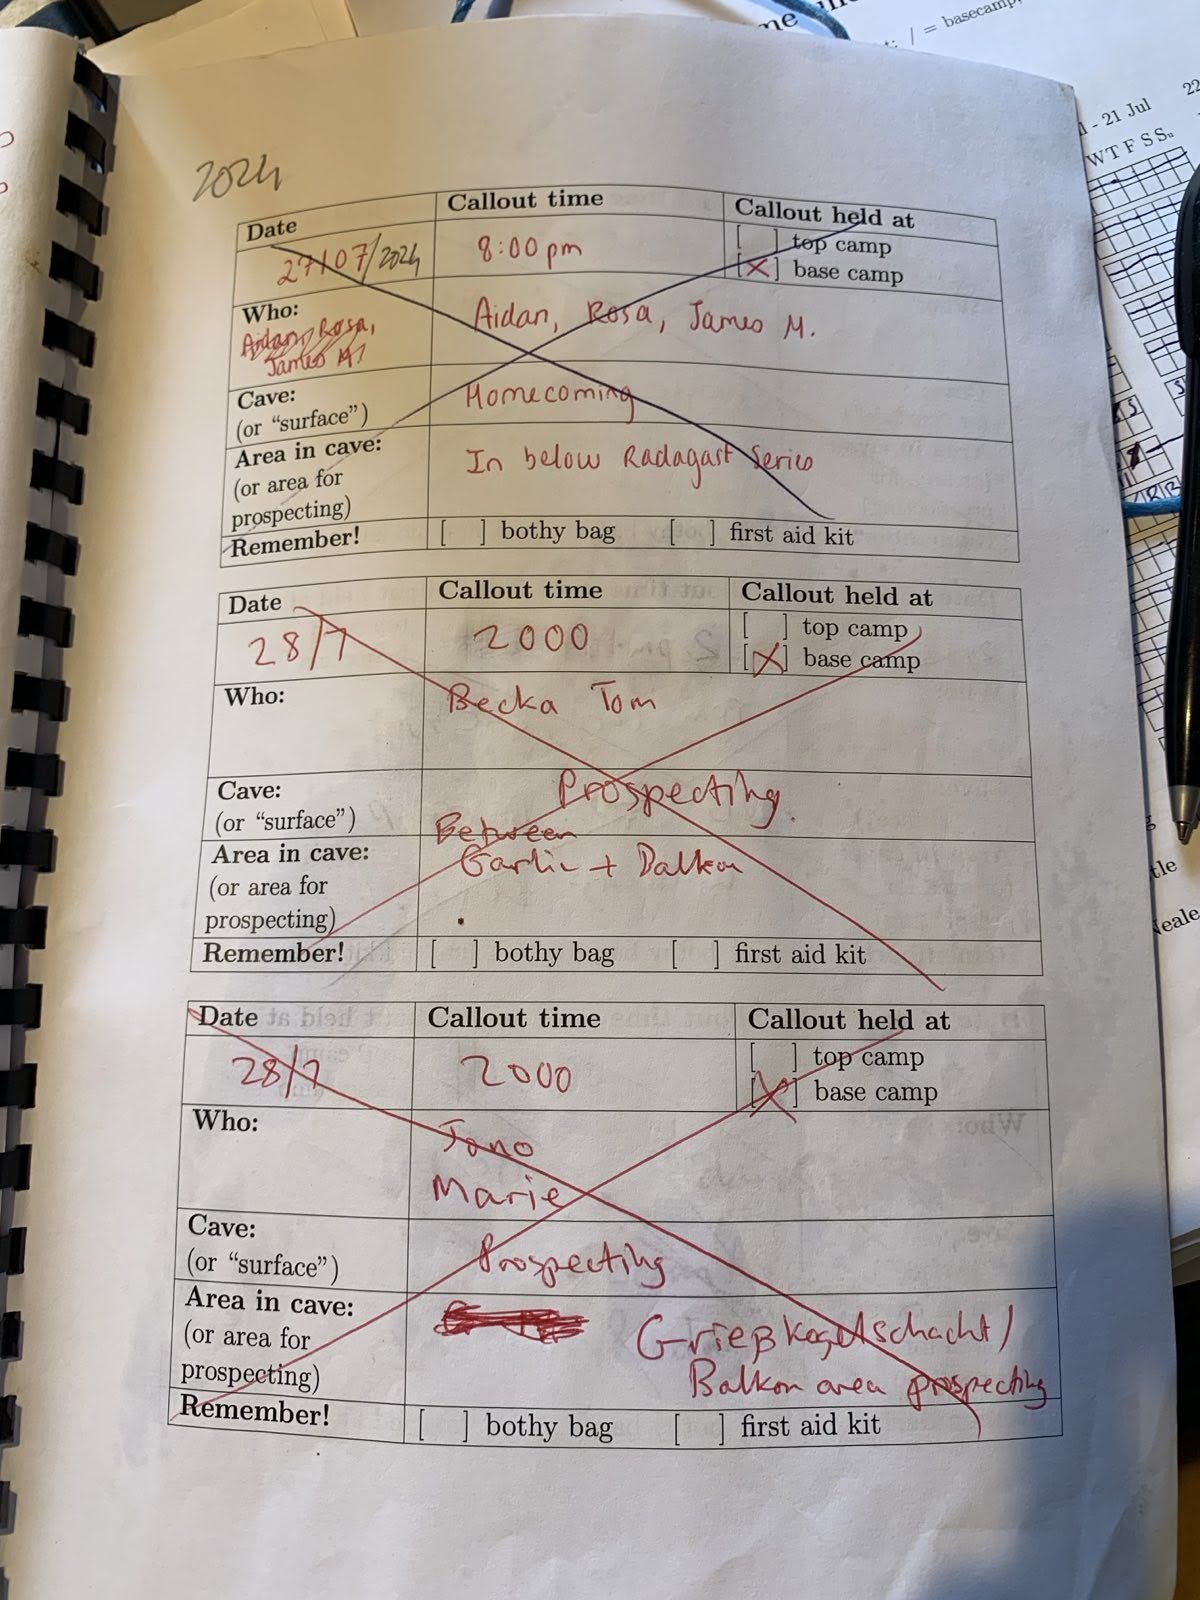 me
t: / = basecamp,
- 21 Jul
22
W T F S Su
2024
Date
Callout time
Callout held at
27/07/2024
8:00pm
[ ] top camp
[X] base camp
Who:
Aidan, Rosa,
James M?
Aidan, Rosa, James M.
Cave:
(or “surface”)
Homecoming
Area in cave:
(or area for
prospecting)
In below Radagast Series
Remember!
[ ] bothy bag [ ] first aid kit
Date
Callout time
Callout held at
28/7
2000
[ ] top camp
[X] base camp
Who:
Becka Tom
Cave:
(or “surface”)
Prospecting
Area in cave:
(or area for
prospecting)
Between
Garlic + Balkon
Remember!
[ ] bothy bag [ ] first aid kit
Date
Callout time
Callout held at
28/7
2000
[ ] top camp
[X] base camp
Who:
Jono
Marie
Cave:
(or “surface”)
Prospecting
Area in cave:
(or area for
prospecting)
Grießkogelschacht/
Balkon area prospecting
Remember!
[ ] bothy bag [ ] first aid kit
tle
Neale